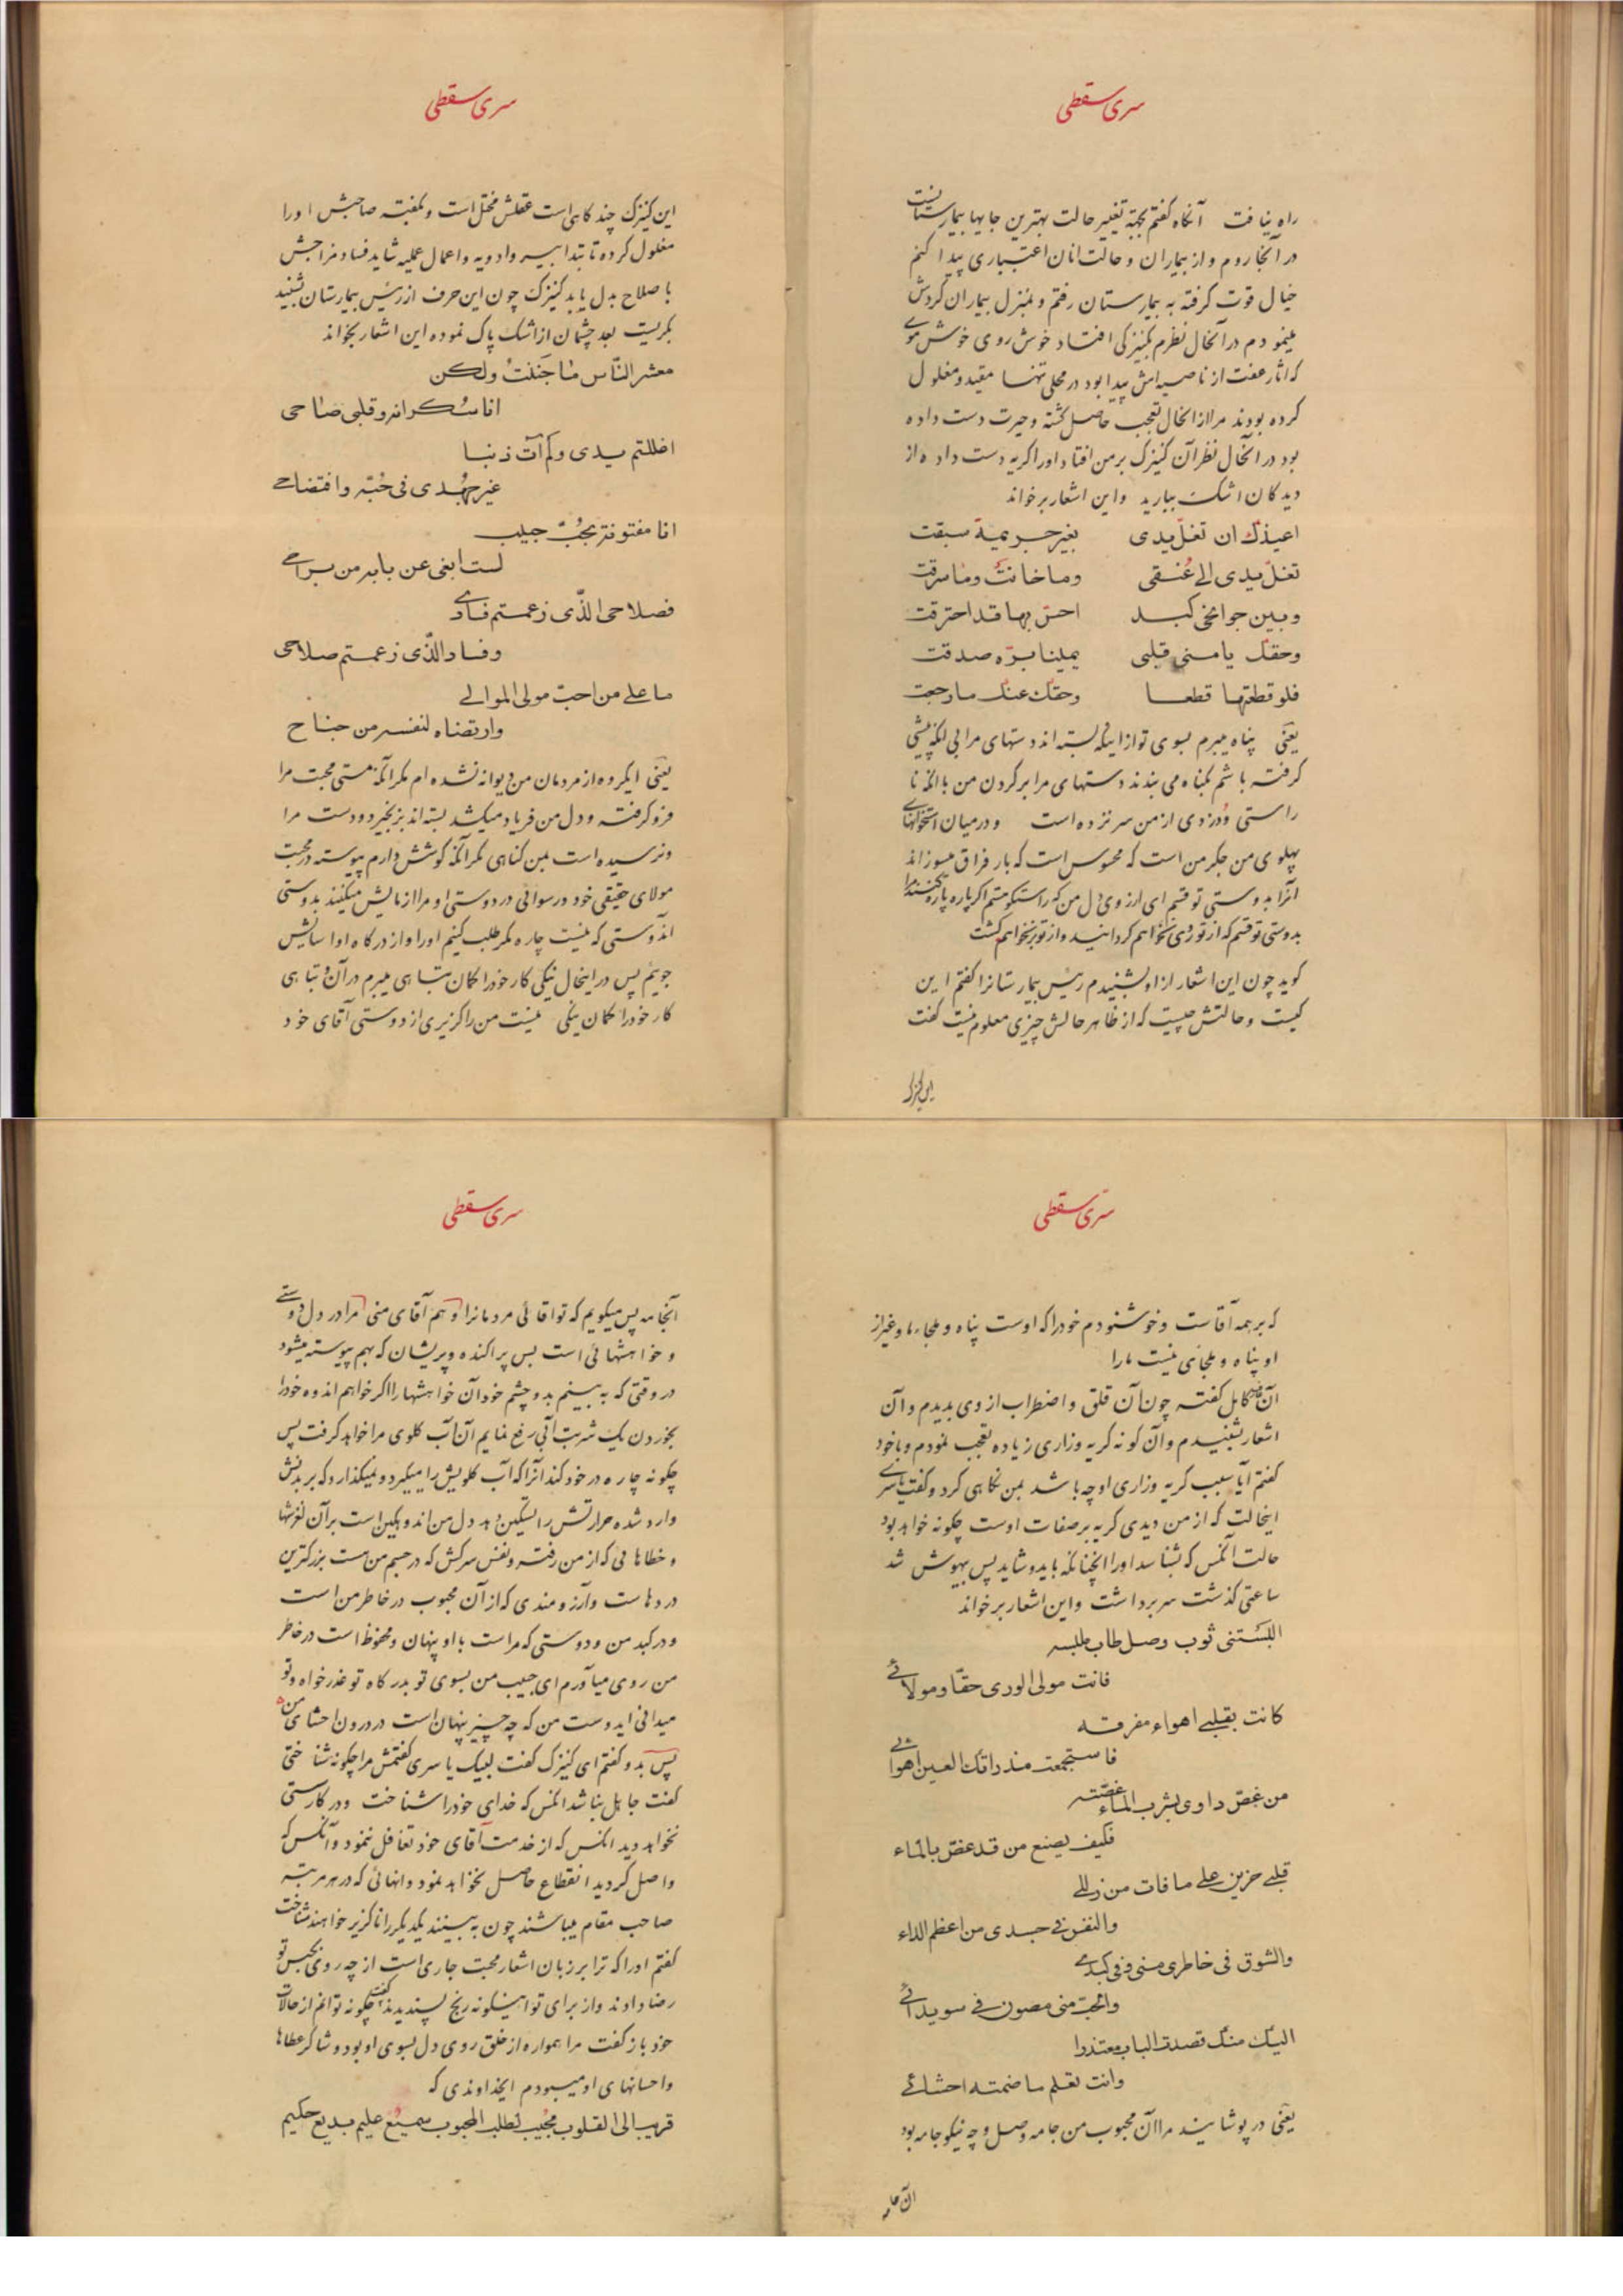 سری سقطی
راه نیافت آنکاه کفتم بجهة تغییر حالت بهترین جایها بیمارستانست
در آنجا روم و از بیماران و حالت انان اعتباری پیدا کنم
خیال قوت کرفته به بیمارستان رفتم و بمنزل بیماران کردش
مینمودم در آنحال نظرم بکنیزکی افتاد خوش روی خوش موی
که اثار عفت از ناصیه اش پیدا بود در محلی تنها مقید و مغلول
کرده بودند مرا از انحال تعجب حاصل کشته و حیرت دست داده
بود در آنحال نظر آن کنیزک بر من افتاد او را کریه دست داده از
دیدکان اشک ببارید و این اشعار بر خواند
اعیذک ان تغل یدی بغیر جریمة سبقت
تغل یدی الی عنقی و ما خانت و ما سرقت
و بین جوانحی کبد احس بها قد احترقت
وحقک یا منی قلبی یمینا برّه صدقت
فلو قطعتها قطعا وحقک عنک ما رجعت
یعنی پناه میبرم بسوی تو از اینکه بسته اند دستهای مرا بی انکه پیشی
کرفته باشم بکناه می بندند دستهای مرا بر کردن من با انکه نا
راستی و دزدی از من سر نزده است و در میان استخوانهای
پهلوی من جکر من است که محسوس است که بار فراق میسوزاند
انرا بدوستی تو قسم ای ارزوی دل من که راستکو هستم اکر پاره پاره کنند مرا
بدوستی تو قسم که از تو روی نخواهم کردانید و از تو بر نخواهم کشت
کوید چون این اشعار از او بشنیدم رئیس بیمارستانرا کفتم این
کیست و حالتش چیست که از ظاهر حالش چیزی معلوم نیست کفت
این کنیزک
سری سقطی
این کنیزک چند کاهی است عقلش مختل است و بکفته صاحبش او را
مغلول کرده تا بتدابیر و ادویه و اعمال عملیه شاید فساد مزاجش
باصلاح بدل یابد کنیزک چون این حرف از رئیس بیمارستان بشنید
بکریست بعد چشمان از اشک پاک نموده این اشعار بخواند
معشر الناس ما جننت ولکن
انا سکرانه و قلبی صاحی
اغللتم یدی ولم آت ذنبا
غیر جهدی فی حبّه وافتضاحی
انا مفتونة بحبّ حبیب
لست ابغی عن بابه من براحی
فصلاحی الذّی زعمتم فسادی
وفساد الذّی زعمتم صلاحی
ما علی من احبّ مولی الموالی
وارتضاه لنفسه من جناح
یعنی ایکروه از مردمان من دیوانه نشده ام مکر انکه مستی محبت مرا
فرو کرفته و دل من فریاد میکشد بسته اند بزنجیر دو دست مرا
و نرسیده است بمن کناهی مکر انکه کوشش دارم پیوسته در محبت
مولای حقیقی خود و رسوائی در دوستی او مرا ازمایش میکنند بدوستی
اندوستی که نیست چاره مکر طلب کنیم او را و از درکاه او اسایش
جویم پس در اینحال نیکی کار خود را کمان تباهی میبرم در آن و تباهی
کار خود را کمان نیکی نیست من را کزیری از دوستی آقای خود
سری سقطی
که بر همه آقاست و خوشنودم خود را که اوست پناه و ملجاء ما و غیر از
او پناه و ملجائی نیست ما را
آن کامل کفته چون آن قلق و اضطراب از وی بدیدم و آن
اشعار بشنیدم و آن کونه کریه و زاری زیاده تعجب نمودم و با خود
کفتم ایا سبب کریه و زاری او چه باشد بمن نکاهی کرد و کفت یا سری
اینحالت که از من دیدی کریه بر صفات اوست چکونه خواهد بود
حالت آنکس که بشناسد او را انچنانکه باید و شاید پس بیهوش شد
ساعتی کذشت سر برداشت و این اشعار بر خواند
البستنی ثوب وصل طاب ملبسه
فانت مولی الوری حقّا و مولائی
کانت بقلبی اهواء مفرقه
فاستجمعت مذ راتک العین اهوائی
من غصّ داوی بشرب الماء غصّته
فکیف یصنع من قد غصّ بالماء
قلبی حزین علی ما فات من زللی
والنفس فی جسدی من اعظم الداء
والشوق فی خاطری منی و فی کبدی
والحبّ منی مصون فی سویدائی
الیک منک قصدت الباب معتذرا
وانت تعلم ما ضمته احشائی
یعنی در پوشانیده مرا آن محبوب من جامه وصل و چه نیکو جامه بود
ان جامه
سری سقطی
آنجامه پس میکویم که تو اقائی مردمانرا و هم آقای منی مرا در دل دوستی
و خواهشهائی است بس پراکنده و پریشان که بهم پیوسته میشود
در وقتی که به بینم بدو چشم خود آن خواهشها را اکر خواهم اندوه خود را
بخوردن یک شربت آبی رفع نمایم آن آب کلوی مرا خواهد کرفت پس
چکونه چاره درخود کند آنرا که آب کلویش را میکیرد و نمیکذارد که بر بدنش
وارد شده حرارتش را تسکین دهد دل من اندوهکین است بر آن لغزشها
و خطاهائی که از من رفته و نفس سرکش که در جسم من است بزرکترین
دردهاست و آرزومندی که از آن محبوب در خاطر من است
و در کبد من و دوستی که مراست با او پنهان و محفوظ است در خاطر
من روی میآورم ای حبیب من بسوی تو بدرکاه تو عذر خواه و تو
میدانی ایدوست من که چه چیز پنهان است در درون احشای من
پس بدو کفتم ای کنیزک کفت لبیک یا سری کفتمش مرا چکونه شناختی
کفت جاهل نباشد انکس که خدای خود را شناخت و در کار سستی
نخواهد دید انکس که از خدمت آقای خود تغافل ننمود و آنکس که
واصل کردید انقطاع حاصل نخواهد نمود و انهائی که در هر مرتبه
صاحب مقام میباشند چون به بینند یکدیکر را ناکزیر خواهند شناخت
کفتم او را که ترا بر زبان اشعار محبت جاری است از چه روی بحبس تو
رضا دادند و از برای تو اینکونه رنج پسندیدند کفت چکونه توانم از حالات
خود باز کفت مرا همواره از خلق روی دل بسوی او بود و شاکر عطاها
و احسانهای او میبودم ایخداوندی که
قریب الی القلوب مجیب لطلب المحبوب سمیع علیم بدیع حکیم